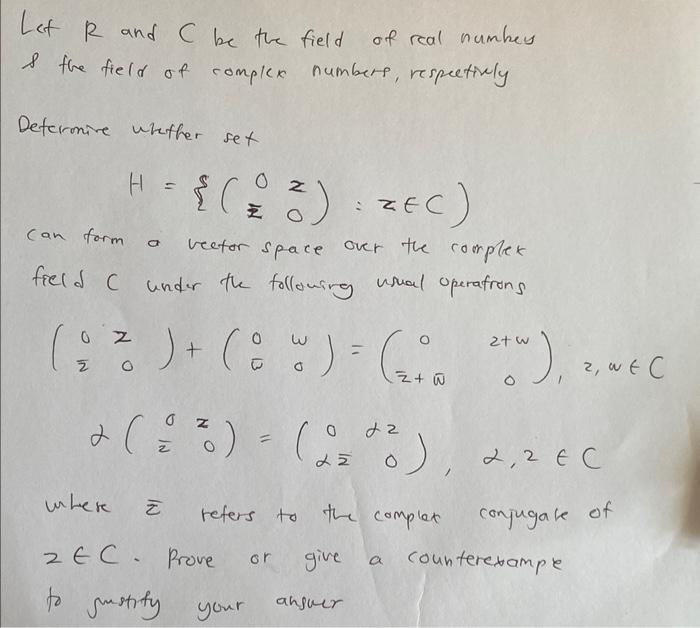 Let R and C be the field of real numbers
& the field of complex numbers, respectively
Determine whether set
H = { ( 0 z ; z̄ 0 ) : z ∈ C )
can form a vector space over the complex
field C under the following usual operations
( 0 z ; z̄ 0 ) + ( 0 w ; w̄ 0 ) = ( 0 z+w ; z̄+w̄ 0 ), z, w ∈ C
α ( 0 z ; z̄ 0 ) = ( 0 αz ; αz̄ 0 ), α, z ∈ C
where z̄ refers to the complex conjugate of
z ∈ C. Prove or give a counterexample
to justify your answer